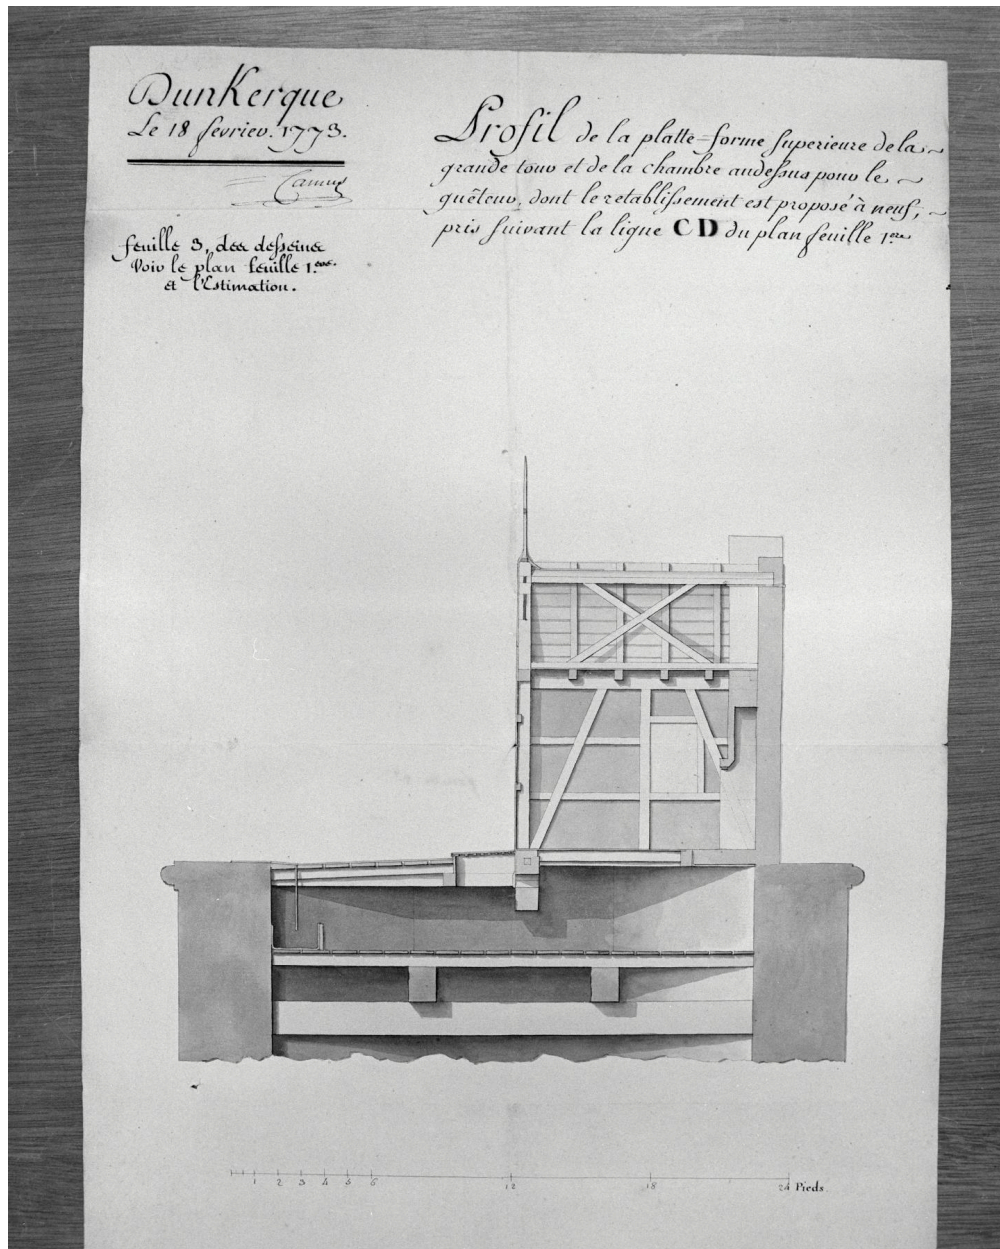 Dunkerque
Le 18 fevrier. 1773.
Camus
feuille 3, des desseins
Voir le plan feuille 1.ere
et l'Estimation.
Profil de la platte=forme superieure de la
grande tour et de la chambre audessus pour le
guêteur, dont le retablissement est proposé à neuf,
pris suivant la ligne CD du plan feuille 1.ere
1 2 3 4 5 6 12 18 24 Pieds.